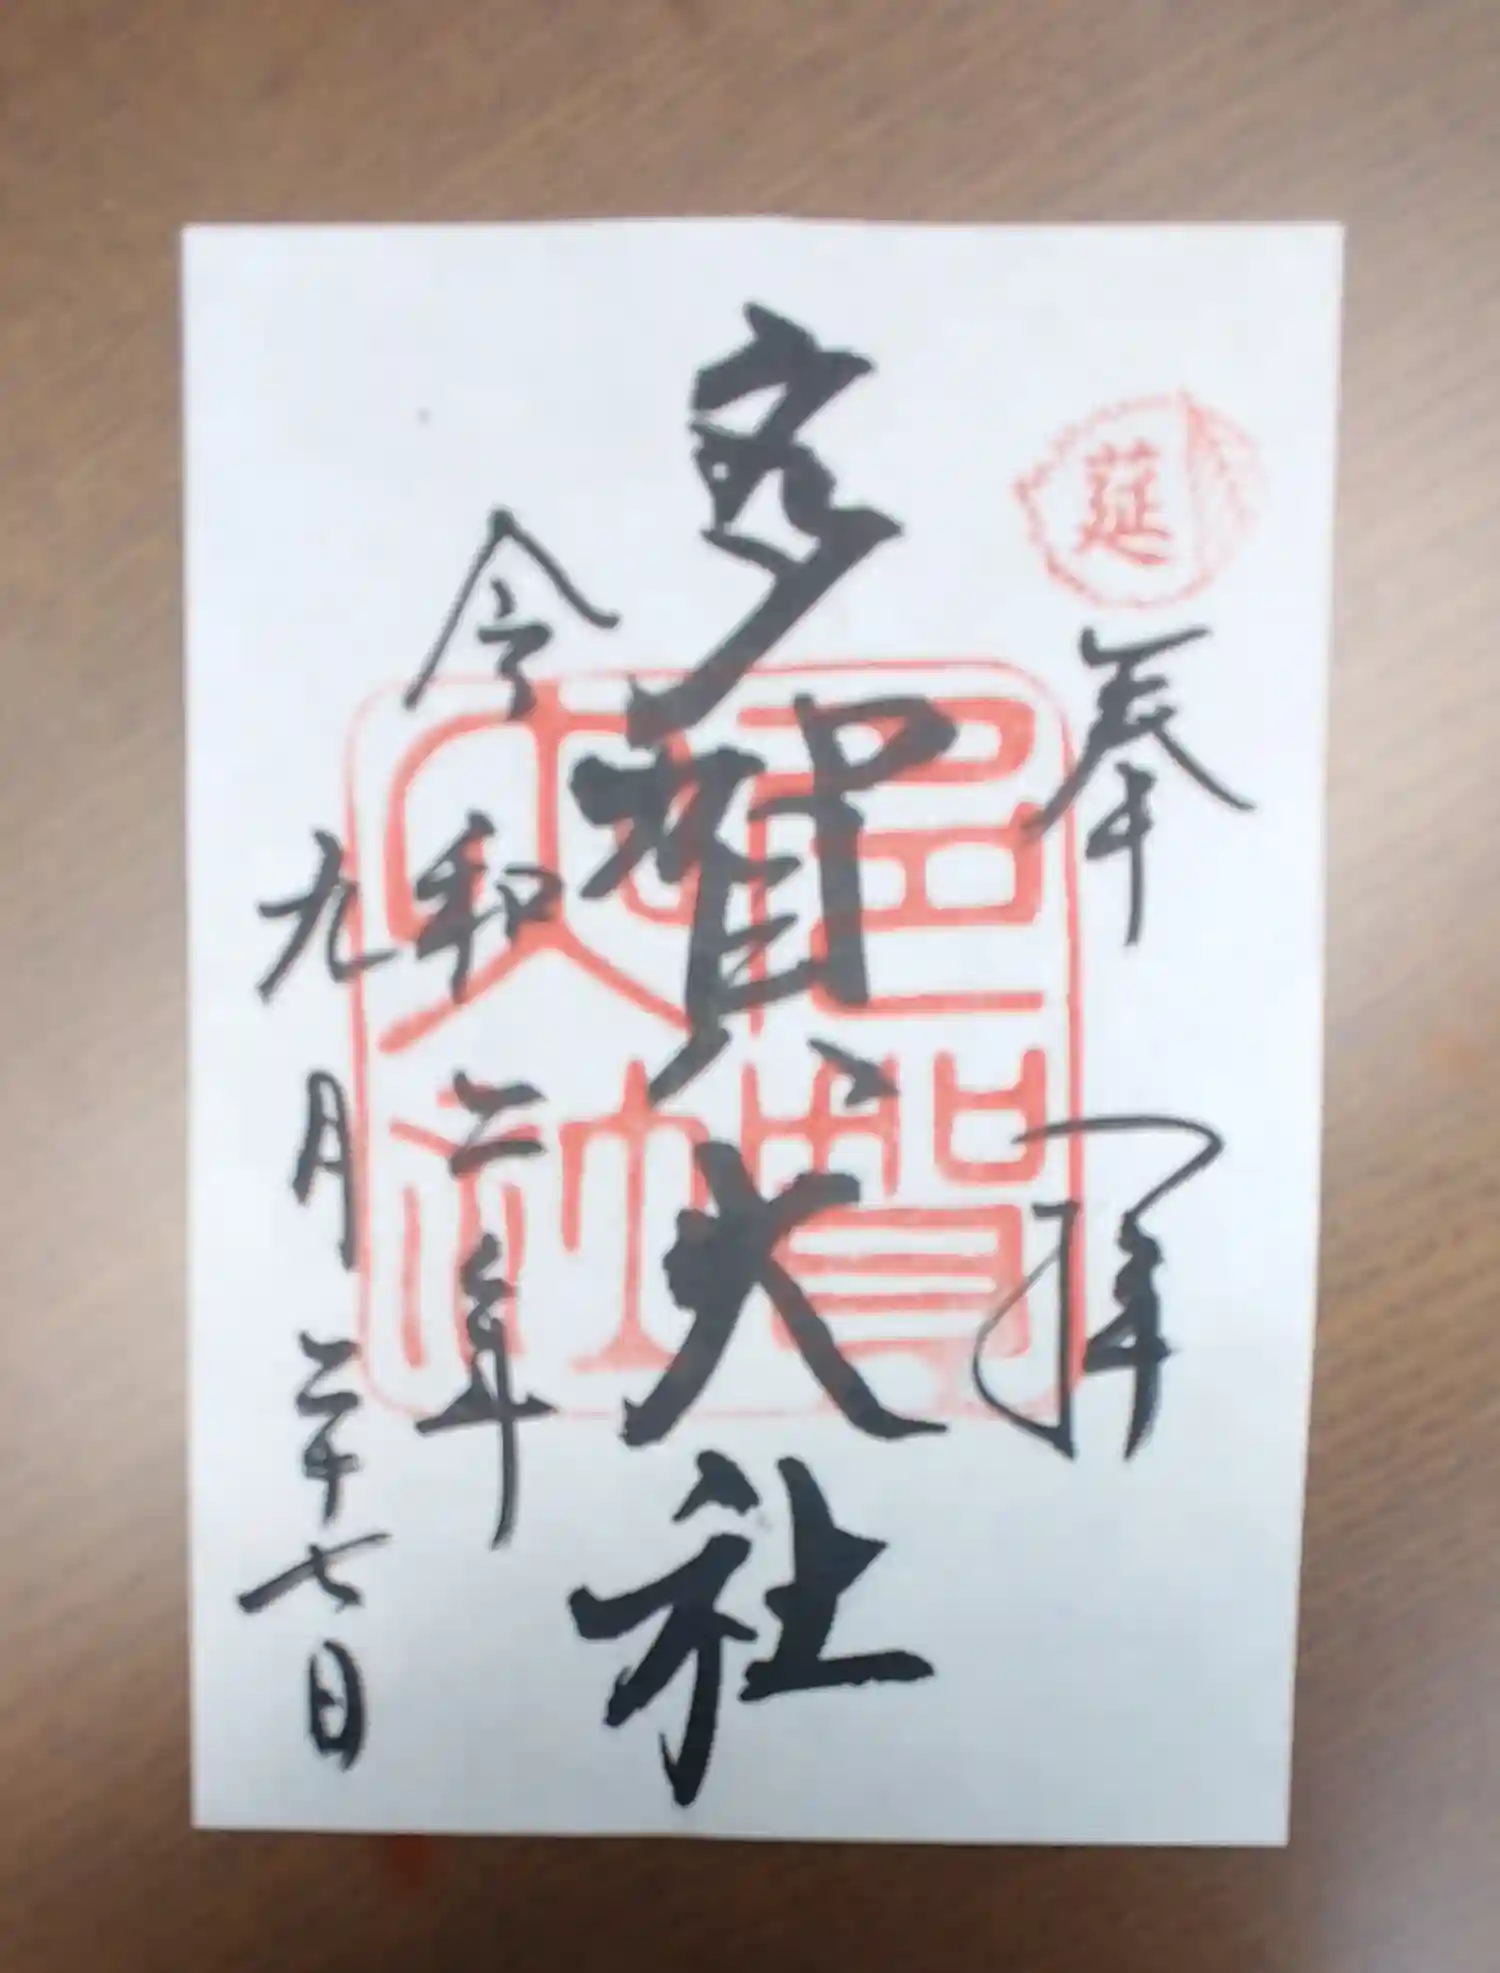 莚
奉拝
多賀大社
令和二年
九月二十七日